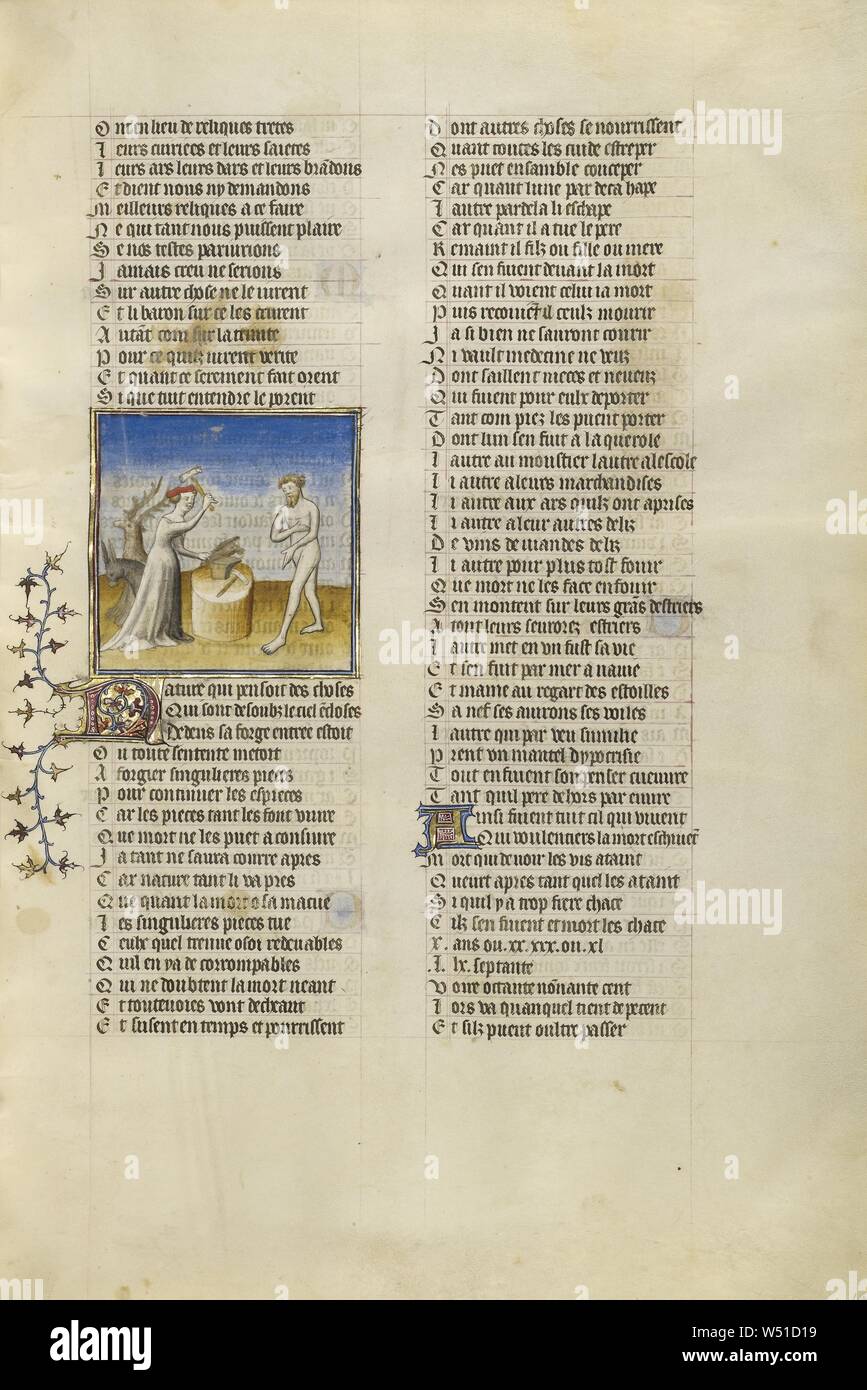 O nt en lieu de reliques tretes
L eurs cuiriees et leurs saietes
L eurs ars leurs dars et leurs brādons
E t dient nous ny demandons
M eilleurs reliques a ce faire
N e qui tant nous puissent plaire
S e nos testes pariurions
J amais creu ne serions
S ur autre chose ne le iurent
E t li baron sur ce les crurent
A utāt com sur la trinite
P our ce quilz iurent verite
E t quant ce serement fait orent
S i que tuit entendre le porent
Nature qui pensoit des choses
Qui sont desoubz le ciel ēcloses
Dedens sa forge entree estoit
O u toute sentente metoit
A forgier singulieres pieces
P our continuer les espieces
C ar les pieces tant les font viure
Q ue mort ne les puet aconsiure
J a tant ne saura courre apres
C ar nature tant li va pres
Q ue quant la mort o sa macue
L es singulieres pieces tue
C eulx quel treuue a soi redeuables
Q uil en ya de corrompables
Q ui ne doubtent la mort neant
E t toutevoies vont decheant
E t susent en temps et pourrissent
D ont autres choses se nourrissent
Q uant toutes les cuide estreper
N es puet ensamble conceper
C ar quant lune par deca hape
L autre par dela li eschape
C ar quant il a tue le pere
R emaint il filz ou fille ou mere
Q ui sen fuient deuant la mort
Q uant il voient celui ia mort
P uis recouiēt il ceulz mourir
J a si bien ne sauront courir
N i vault medecine ne veuz
D ont saillent nieces et neueuz
Q ui fuient pour eulx deporter
T ant com piez les puent porter
D ont lun sen fuit a la querole
L autre au moustier lautre a lescole
L i autre a leurs marchandises
L i autre aux ars quilz ont aprises
L i autre a leur autres deliz
D e vins de viandes deliz
L i autre pour plus tost fouir
Q ue mort ne les face enfouir
S en montent sur leurs grās destriers
A tout leurs seurorez estriers
L autre met en vn fust sa vie
E t sen fuit par mer a nauie
E t maine au regart des estoilles
S a nef ses auirons ses voiles
L autre qui par veu sumilie
P rent vn mantel dypocrisie
T out en fuient son penser cueuure
T ant quil pere dehors par euure
Ainsi fuient tuit cil qui viuent
Qui voulentiers la mort eschiuēt
M ort qui de noir le vis a taint
Q ueurt apres tant quel les ataint
S i quil y a trop fiere chace
C ilz sen fuient et mort les chace
X. ans ou .xx. xxx. ou .xl
.L. lx. septante
V oire octante nōnante cent
L ors va quanquel tient depecent
E t silz puent oultre passer
alamy
alamy
Image ID: W51D19
www.alamy.com